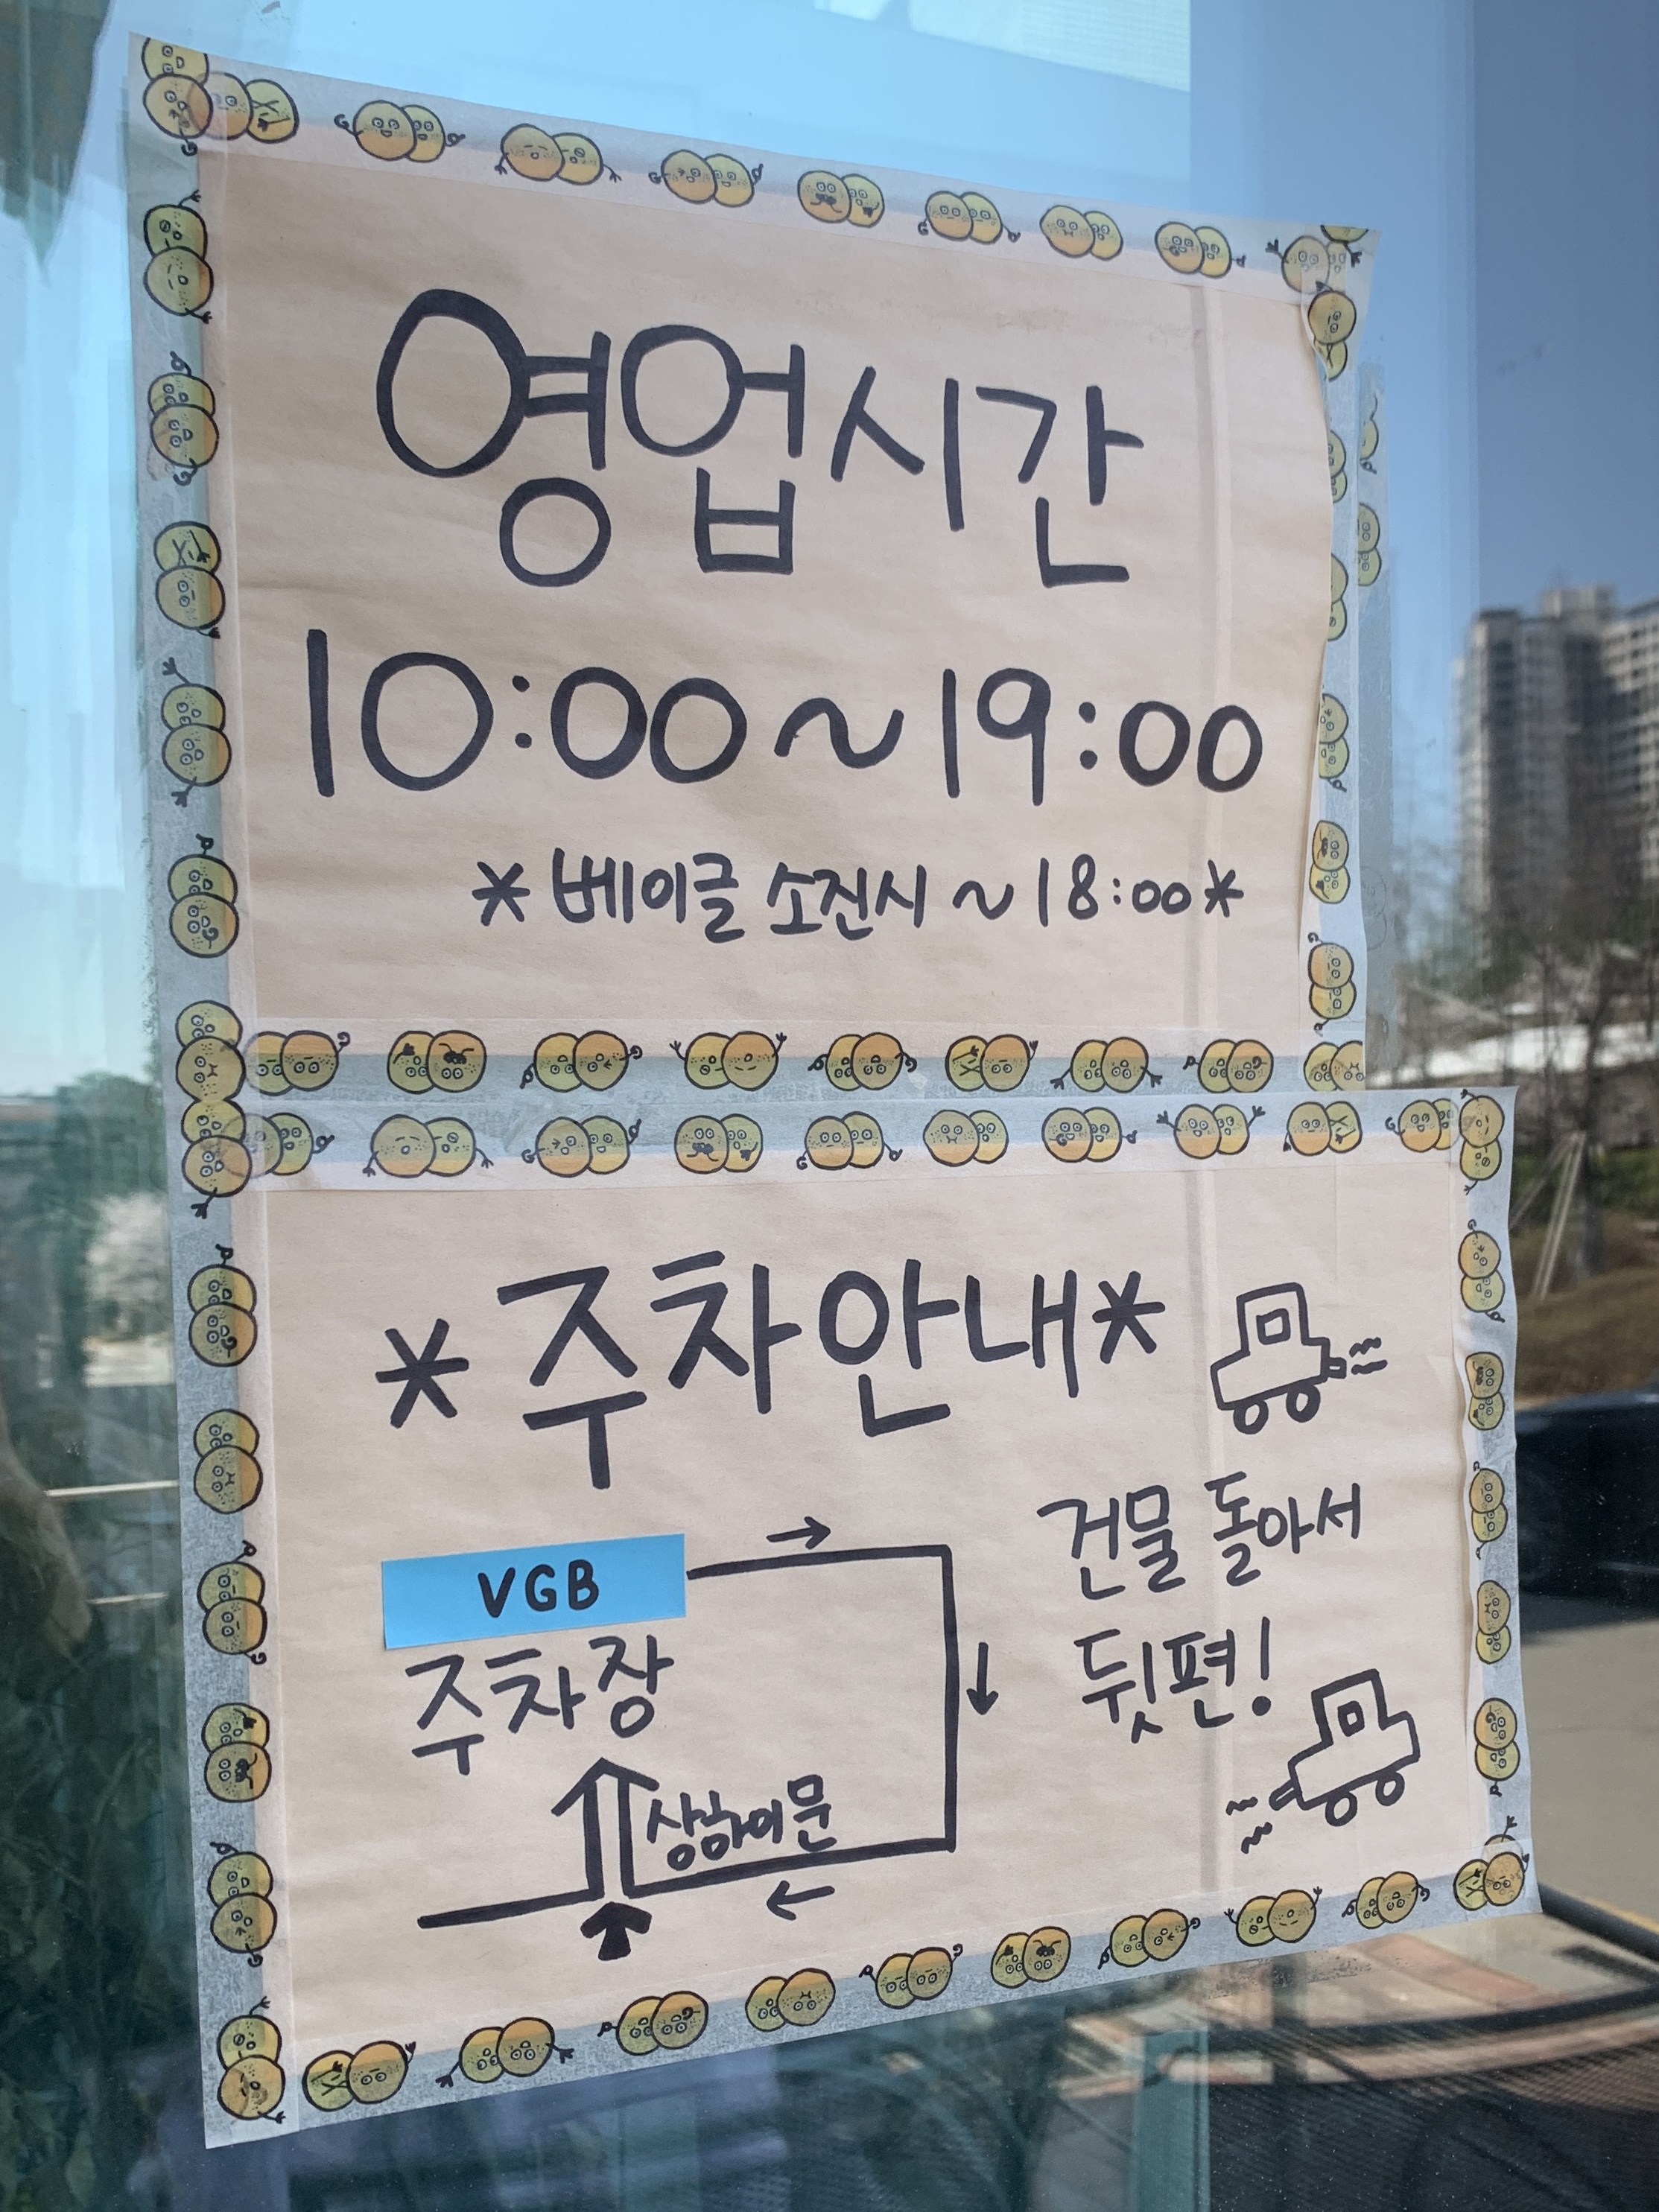 영업시간
10:00~19:00
*베이글 소진시 ~18:00*
*주차안내*
건물 돌아서
뒷편!
VGB
주차장
상하이문